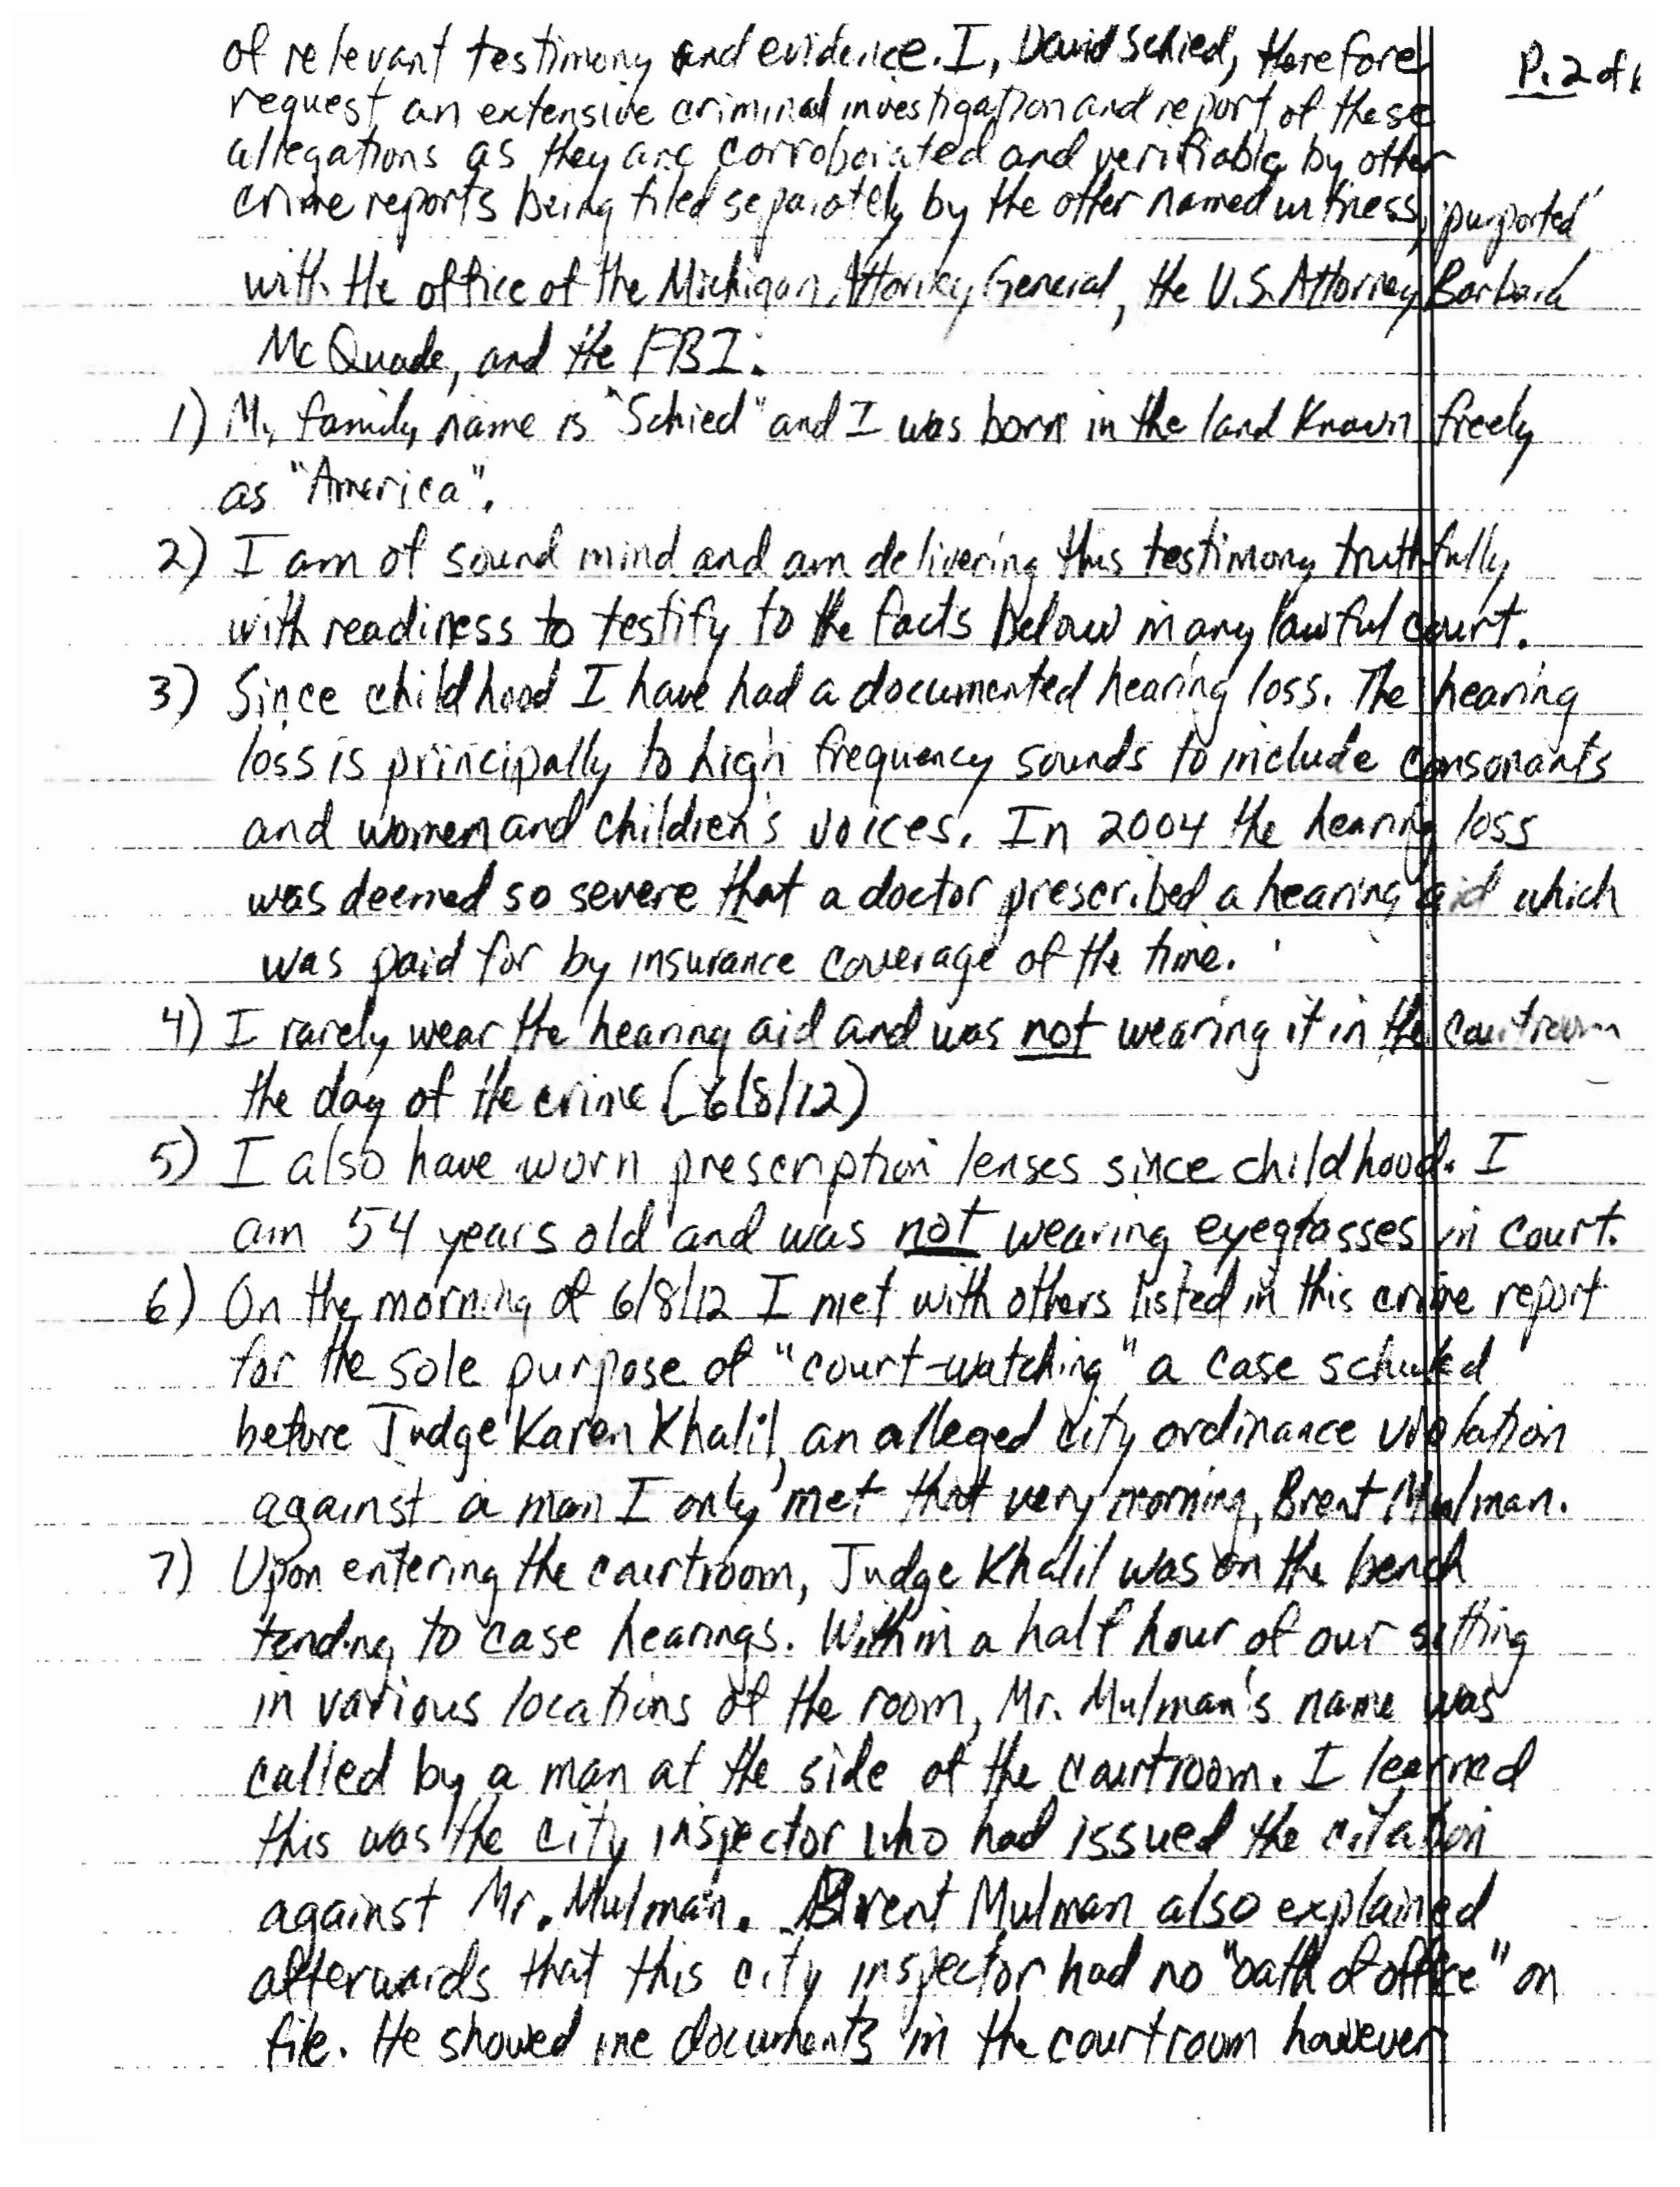 P. 2 of 6
of relevant testimony and evidence. I, David Schied, therefore
request an extensive criminal investigation and report of these
allegations as they are corroborated and verifiable by other
crime reports being filed separately by the other named witness, purported
with the office of the Michigan Attorney General, the U.S. Attorney Barbara
McQuade, and the FBI.
1) My family name is "Schied" and I was born in the land known freely
as "America".
2) I am of sound mind and am delivering this testimony truthfully
with readiness to testify to the facts below in any lawful court.
3) Since childhood I have had a documented hearing loss. The hearing
loss is principally to high frequency sounds to include consonants
and women and children's voices. In 2004 the hearing loss
was deemed so severe that a doctor prescribed a hearing aid which
was paid for by insurance coverage of the time.
4) I rarely wear the hearing aid and was not wearing it in the courtroom
the day of the crime (6/8/12)
5) I also have worn prescription lenses since childhood. I
am 54 years old and was not wearing eyeglasses in court.
6) On the morning of 6/8/12 I met with others listed in this crime report
for the sole purpose of "court-watching" a case schuled
before Judge Karen Khalil, an alleged city ordinance violation
against a man I only met that very morning, Brent Mulman.
7) Upon entering the courtroom, Judge Khalil was on the bench
tending to case hearings. Within a half hour of our sitting
in various locations of the room, Mr. Mulman's name was
called by a man at the side of the courtroom. I learned
this was the city inspector who had issued the citation
against Mr. Mulman. Brent Mulman also explained
afterwards that this city inspector had no "oath of office" on
file. He showed me documents in the courtroom however